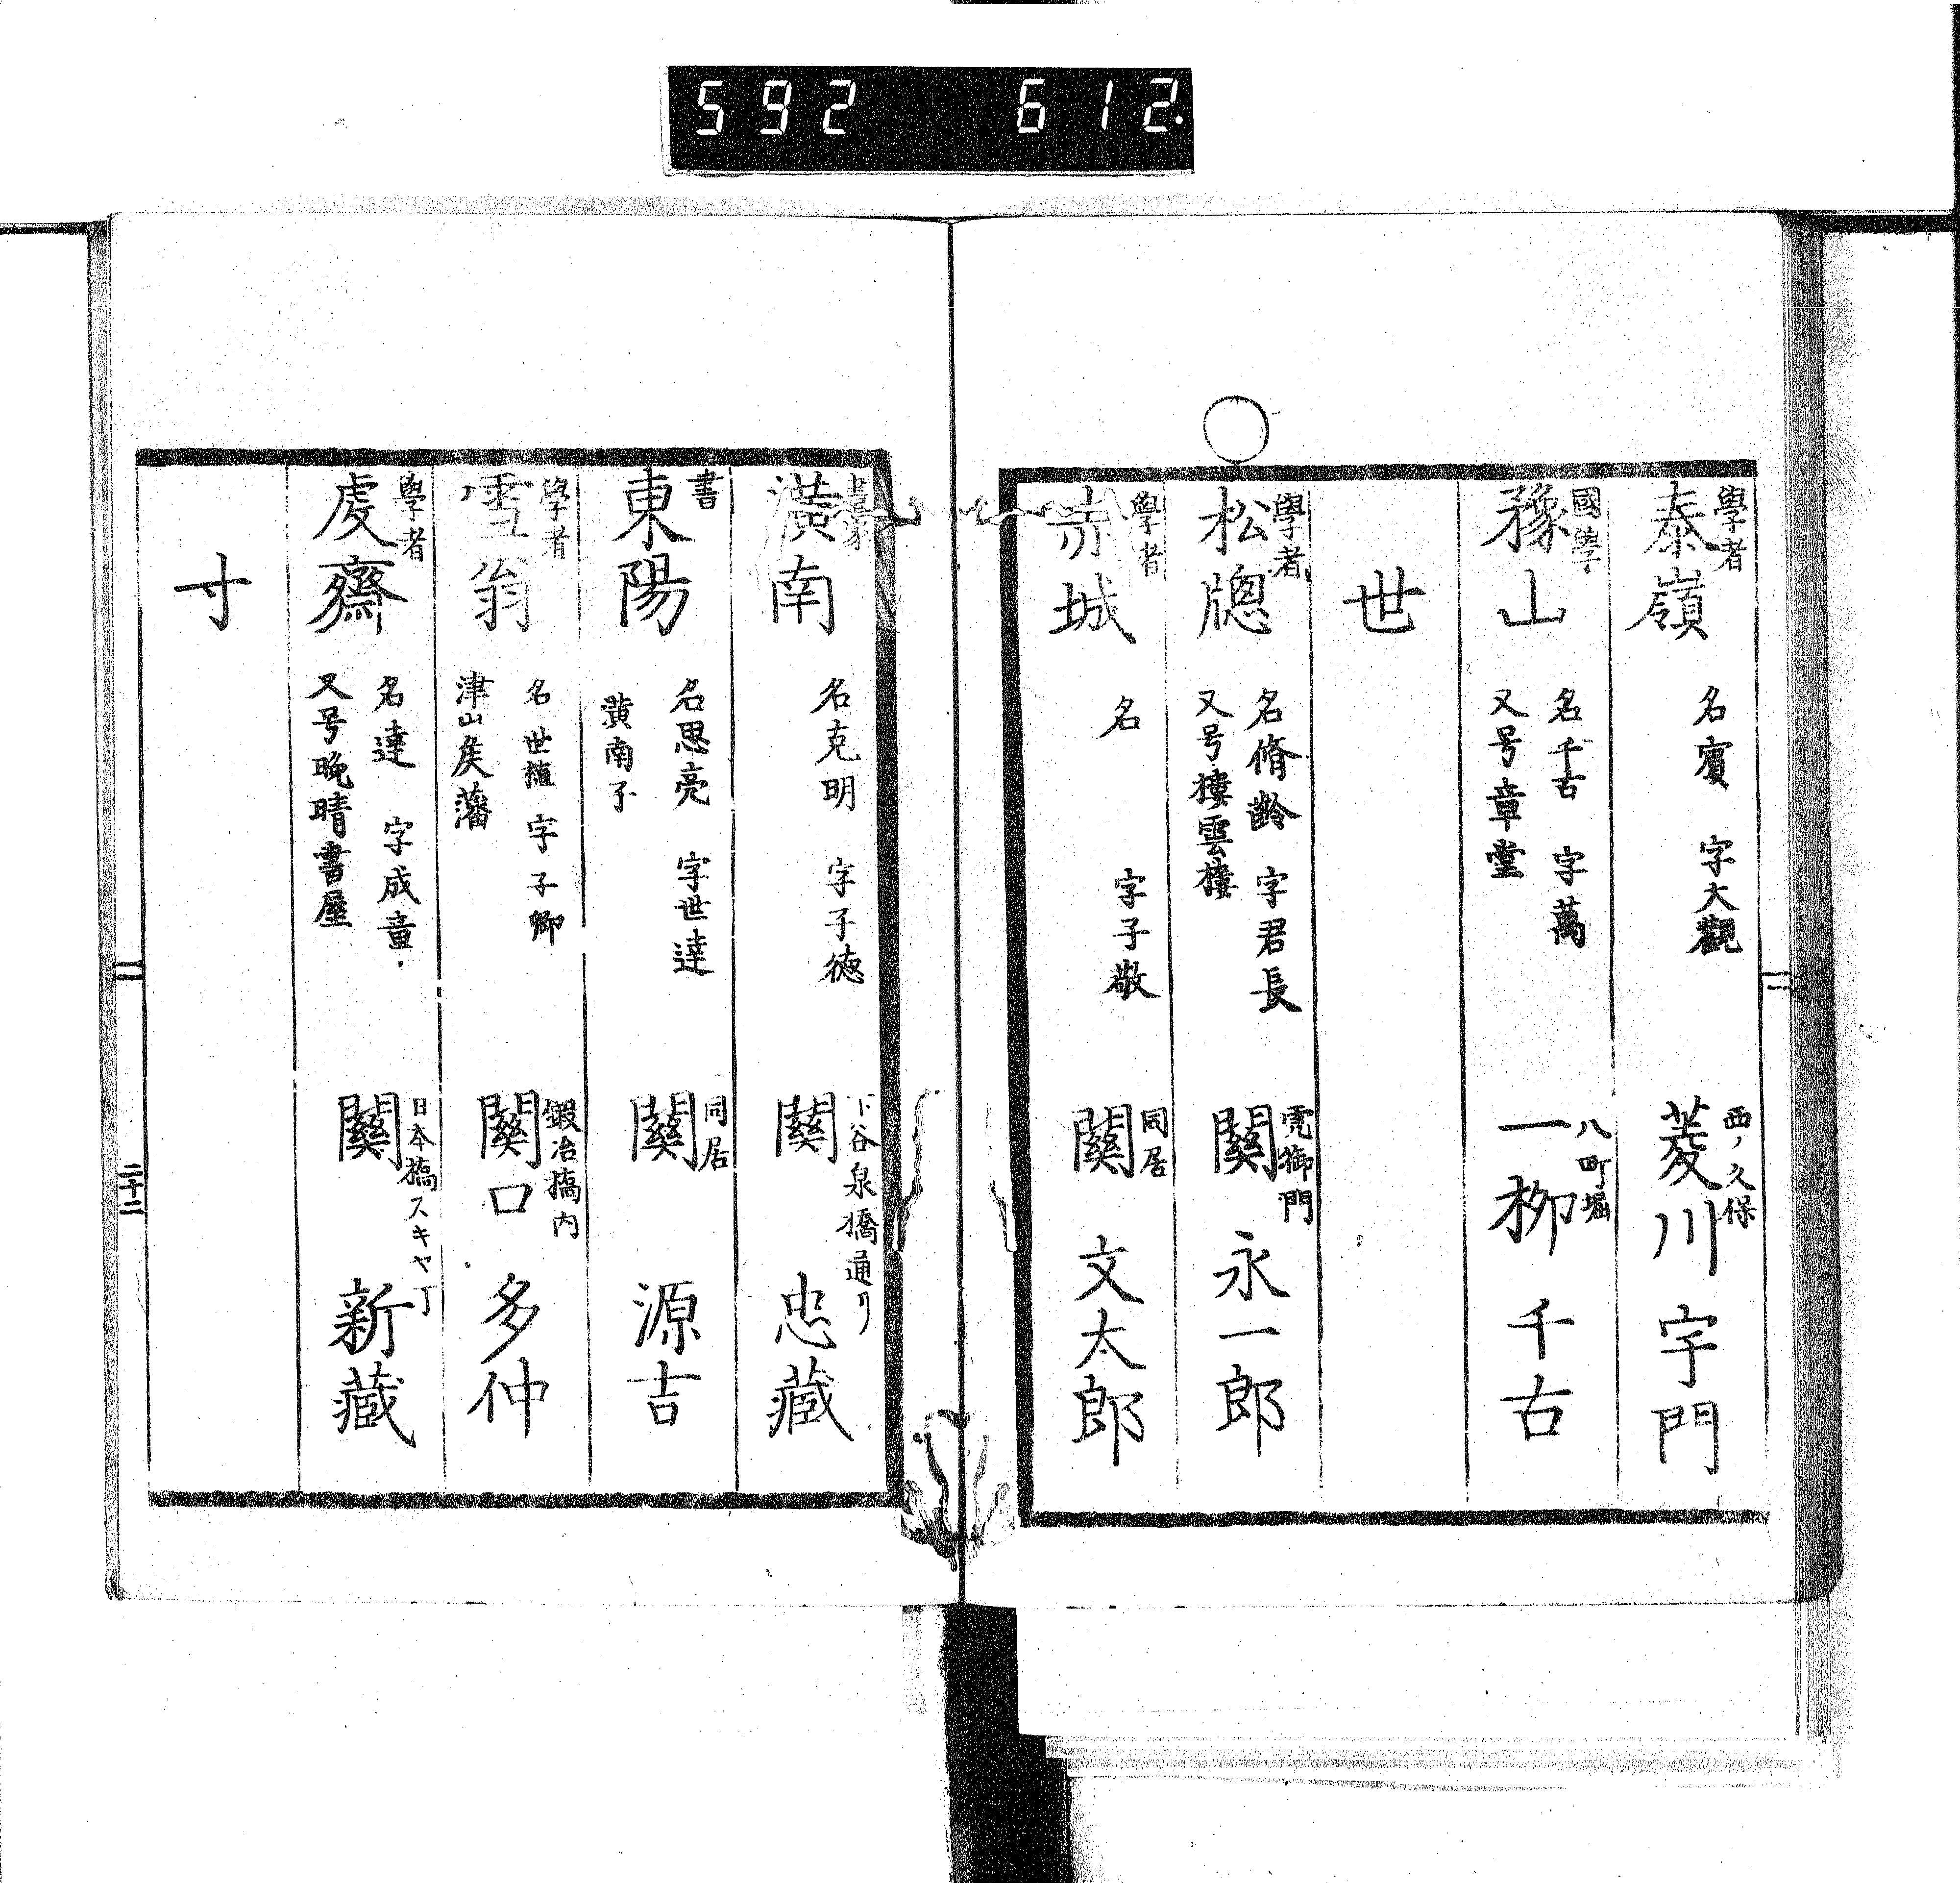 592 612.
學者
泰嶺
名賓 字大觀
西ノ久保
菱川 宇門
國學
豫山
名千古 字萬
又号章堂
八町堀
一柳 千古
世
學者
松牕
名脩齡 字君長
又号樓雲樓
虎御門
關 永一郎
學者
赤城
名 字子敬
同居
關 文太郎
潢南
名克明 字子德
下谷泉橋通リ
關 忠藏
書
東陽
名思亮 字世達
黄南子
同居
關 源吉
學者
雪翁
名世植 字子卿
津山矦藩
鍜冶橋内
關口 多仲
學者
虔齋
名達 字成章
又号晩晴書屋
日本橋スキヤ丁
關 新藏
寸
二十二